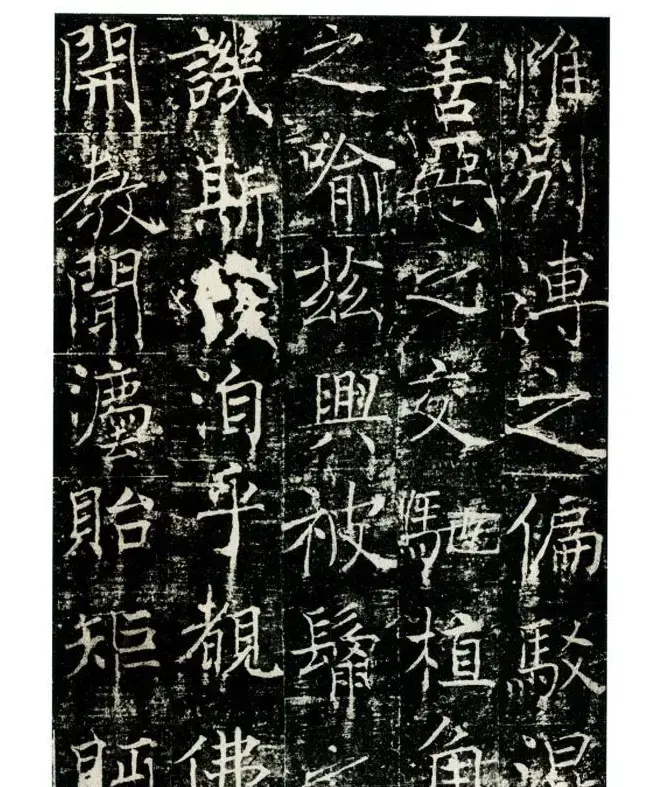 惟別之偏駁混
善惡之交馳植角
之喻茲興被之
譏斯洎乎覩佛
開教聞灋貽矩